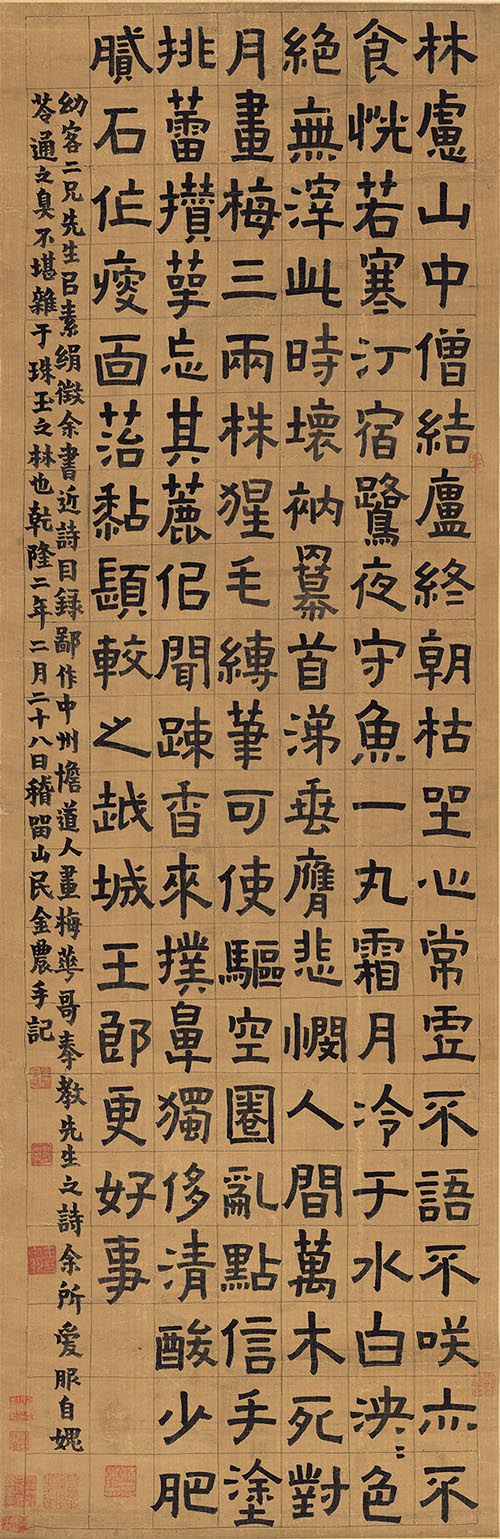 林慮山中僧結廬終朝枯坐心常虛不語不咲亦不
食恍若寒汀宿鷺夜守魚一丸霜月冷于水白泱〻色
絕無滓此時壞衲冪首涕垂膺悲憫人間萬木死對
月畫梅三兩株猩毛縛筆可使驅空圈亂點信手塗
挑蕾攢萼忘其麄但聞踈香來撲鼻獨侈清酸少肥
膩石作瘦面菭黏較之越城王郎更好事
幼客二兄先生㠯素絹徵余書近詩目録鄙作中州擔道人畫梅華哥奉教先生之詩余所愛服自媿
苓通之臭不堪雜于珠玉之林也乾隆二年二月二十八日稽留山民金農手記